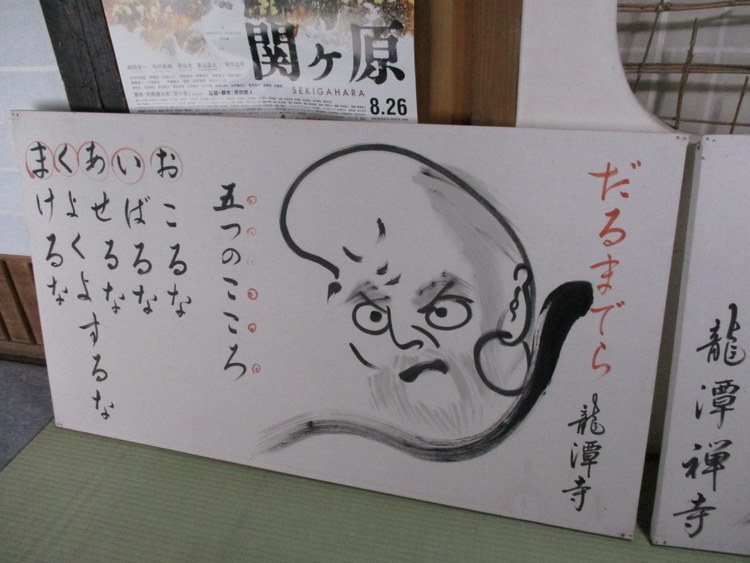 関ヶ原
SEKIGAHARA
8.26
だるまでら
龍潭寺
五つのこころ
おこるな
いばるな
あせるな
くよくよするな
まけるな
龍潭禅寺